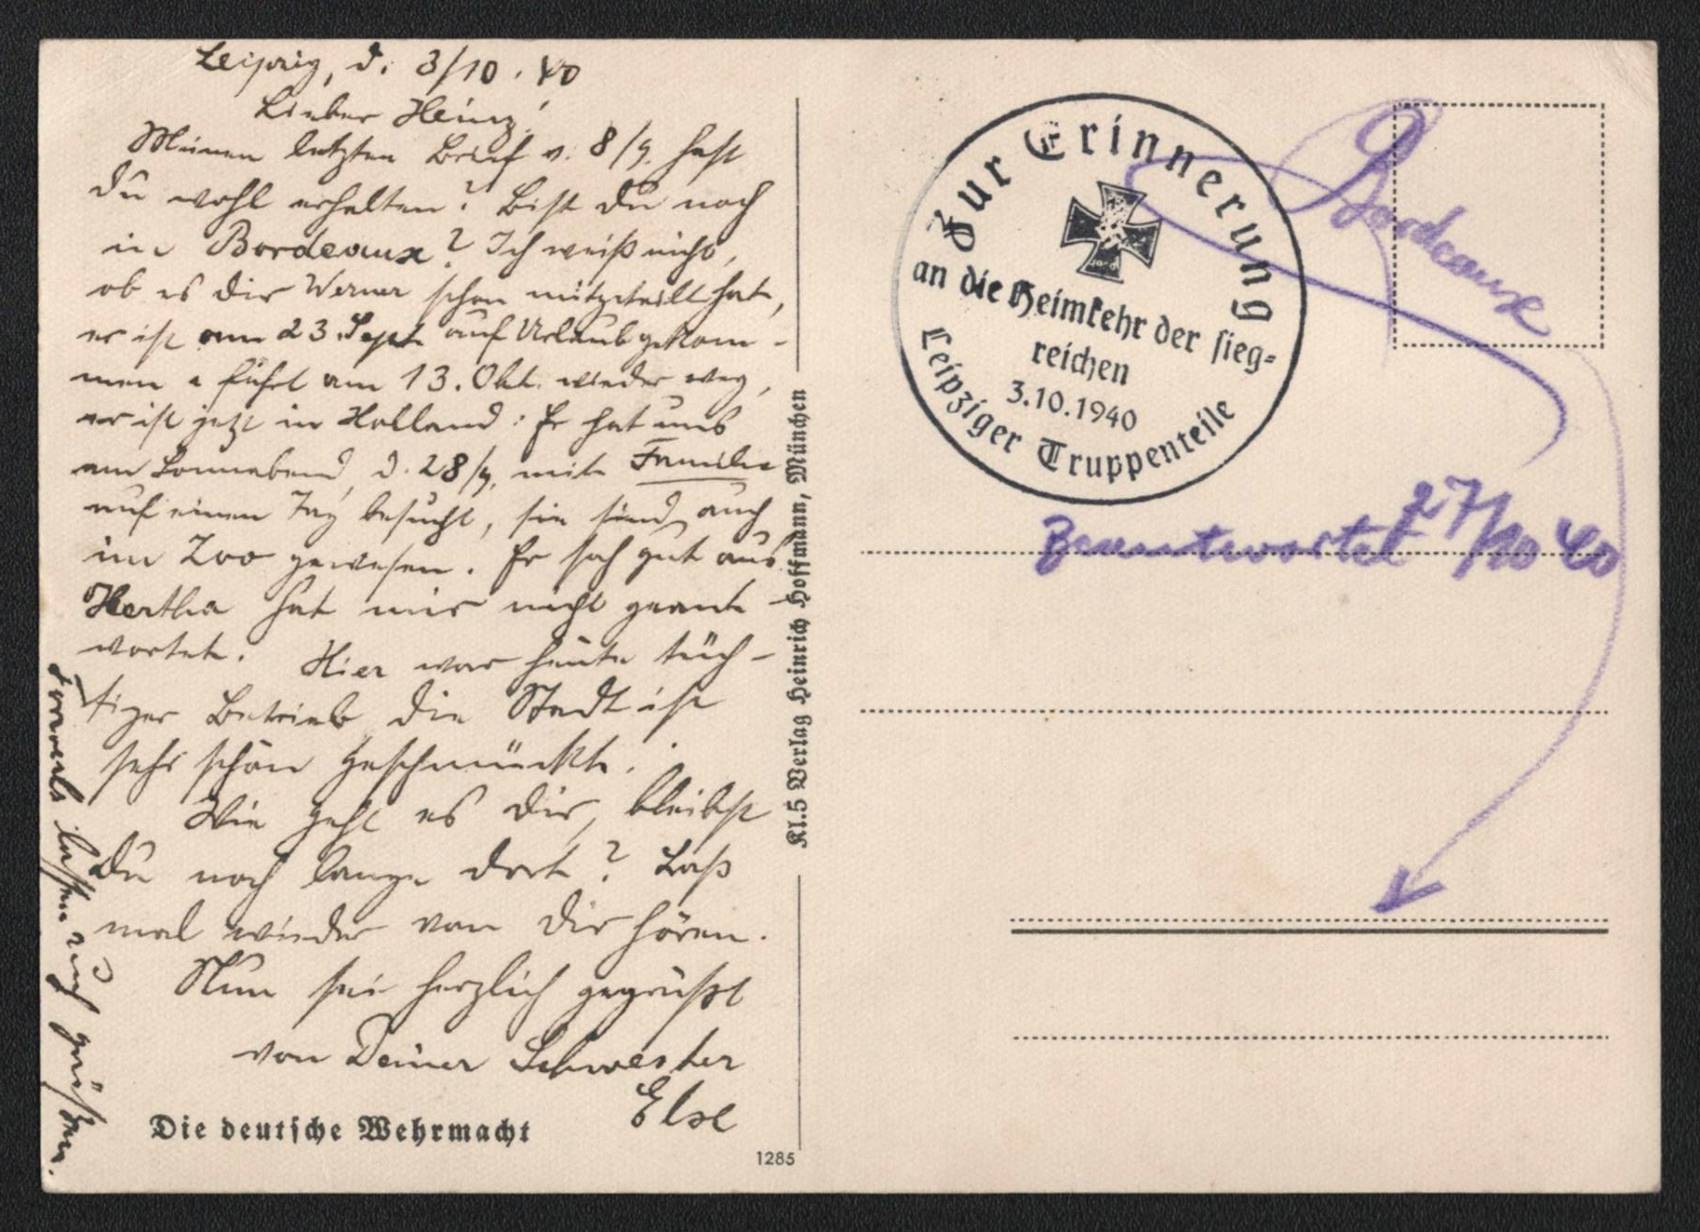 Leipzig, d. 3/10. 40
Lieber Heinz!
Meinen letzten Brief v. 8/9. hast
Du wohl erhalten? Bist Du noch
in Bordeaux? Ich weiß nicht,
ob es dir Werner schon mitgeteilt hat,
er ist am 23. Sept. auf Urlaub gekom-
men u fährt am 13. Okt. wieder weg,
er ist jetzt in Holland. Er hat uns
am Sonnabend, d. 28/9. mit Familie
auf einen Tag besucht, sie sind auch
im Zoo gewesen. Er sah gut aus.
Hertha hat mir nicht geant-
wortet. Hier war heute tüch-
tiger Betrieb, die Stadt ist
sehr schön geschmückt.
Wie geht es Dir, bleibst
Du noch lange dort? Laß
mal wieder von Dir hören.
Nun sei herzlich gegrüßt
von Deiner Schwester
Else
lassen auch grüßen.
Die deutsche Wehrmacht
1285
Kl.5 Verlag Heinrich Hoffmann, München
Zur Erinnerung
an die Heimkehr der sieg-
reichen
3.10.1940
Leipziger Truppenteile
Bordeaux
Beantwortet 27/10 40